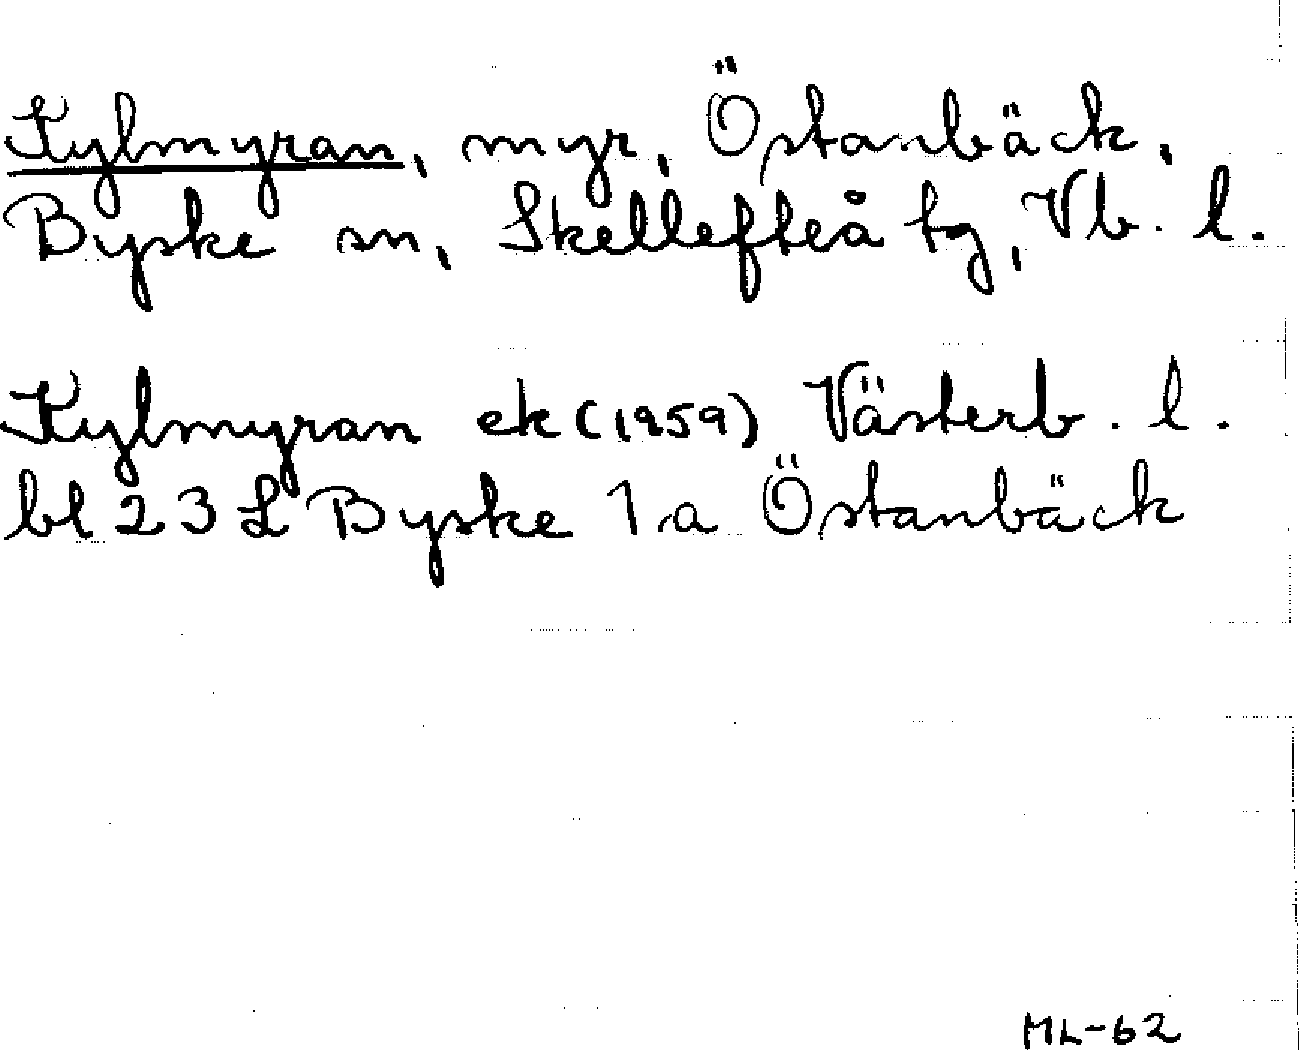 Kylmyran, myr, Östanbäck,
Byske sn, Skellefteå tg, Vb. l.
Kylmyran ek (1959) Västerb. l.
bl 23 L Byske 1 a Östanbäck
ML-62